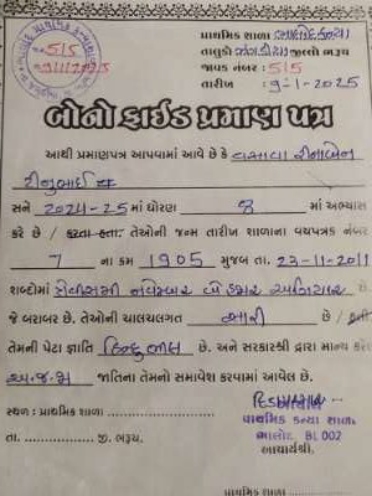 515
9/1/2025
પ્રાથમિક શાળા ભાલોદ કન્યા
તાલુકો ઝઘડીયા જીલ્લો ભરૂચ
જાવક નંબર : 515
તારીખ : 9-1-2025
બોનોફાઈડ પ્રમાણ પત્ર
આથી પ્રમાણપત્ર આપવામાં આવે છે કે વસાવા રીનાબેન
રીનુભાઈ
સને 2024-25 માં ધોરણ 8 માં અભ્યાસ
કરે છે / કરતા હતા. તેઓની જન્મ તારીખ શાળાના વયપત્રક નંબર
7 ના ક્રમ 1905 મુજબ તા. 23-11-2011
શબ્દોમાં ત્રેવીસમી નવેમ્બર બે હજાર અગિયાર છે.
જે બરાબર છે. તેઓની ચાલચલગત સારી છે / હતી
તેમની પેટા જ્ઞાતિ હિન્દુ ભીલ છે. અને સરકારશ્રી દ્વારા માન્ય કરેલ
અ.જ.જા જાતિના તેમનો સમાવેશ કરવામાં આવેલ છે.
સ્થળ : પ્રાથમિક શાળા ....................
તા. ................ જી. ભરૂચ.
પ્રાથમિક કન્યા શાળા,
ભાલોદ BL 002
આચાર્યશ્રી.
પ્રાથમિક શાળા